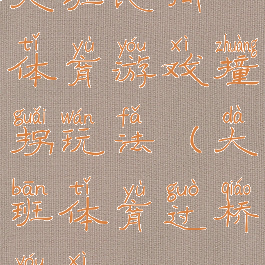 tǐ yù yóu xì zhuàng
体育游戏撞
guǎi wán fǎ dà
拐玩法（大
bān tǐ yù guò qiáo
班体育过桥
yóu xì